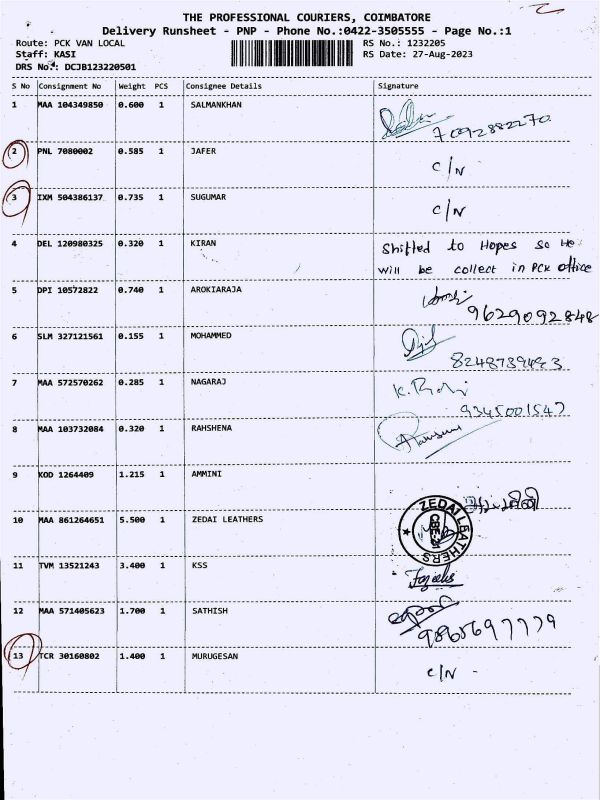 THE PROFESSIONAL COURIERS, COIMBATORE
Delivery Runsheet - PNP - Phone No.:0422-3505555 - Page No.:1
Route: PCK VAN LOCAL RS No.: 1232205
Staff: KASI RS Date: 27-Aug-2023
DRS No.: DCJB123220501
S No Consignment No Weight PCS Consignee Details Signature
1 MAA 104349850 0.600 1 SALMANKHAN
7092882270
2 PNL 7080002 0.585 1 JAFER
C/N
3 IXM 504386137 0.735 1 SUGUMAR
C/N
4 DEL 120980325 0.320 1 KIRAN Shifted to Hopes so He
will be collect in PCK office
5 DPI 10572822 0.740 1 AROKIARAJA
9629092848
6 SLM 327121561 0.155 1 MOHAMMED
8248739493
7 MAA 572570262 0.285 1 NAGARAJ
9345001547
8 MAA 103732084 0.320 1 RAHSHENA
9 KOD 1264409 1.215 1 AMMINI
10 MAA 861264651 5.500 1 ZEDAI LEATHERS ZEDAI LEATHERS
11 TVM 13521243 3.400 1 KSS
12 MAA 571405623 1.700 1 SATHISH
9865697779
13 TCR 30160802 1.400 1 MURUGESAN
C/N